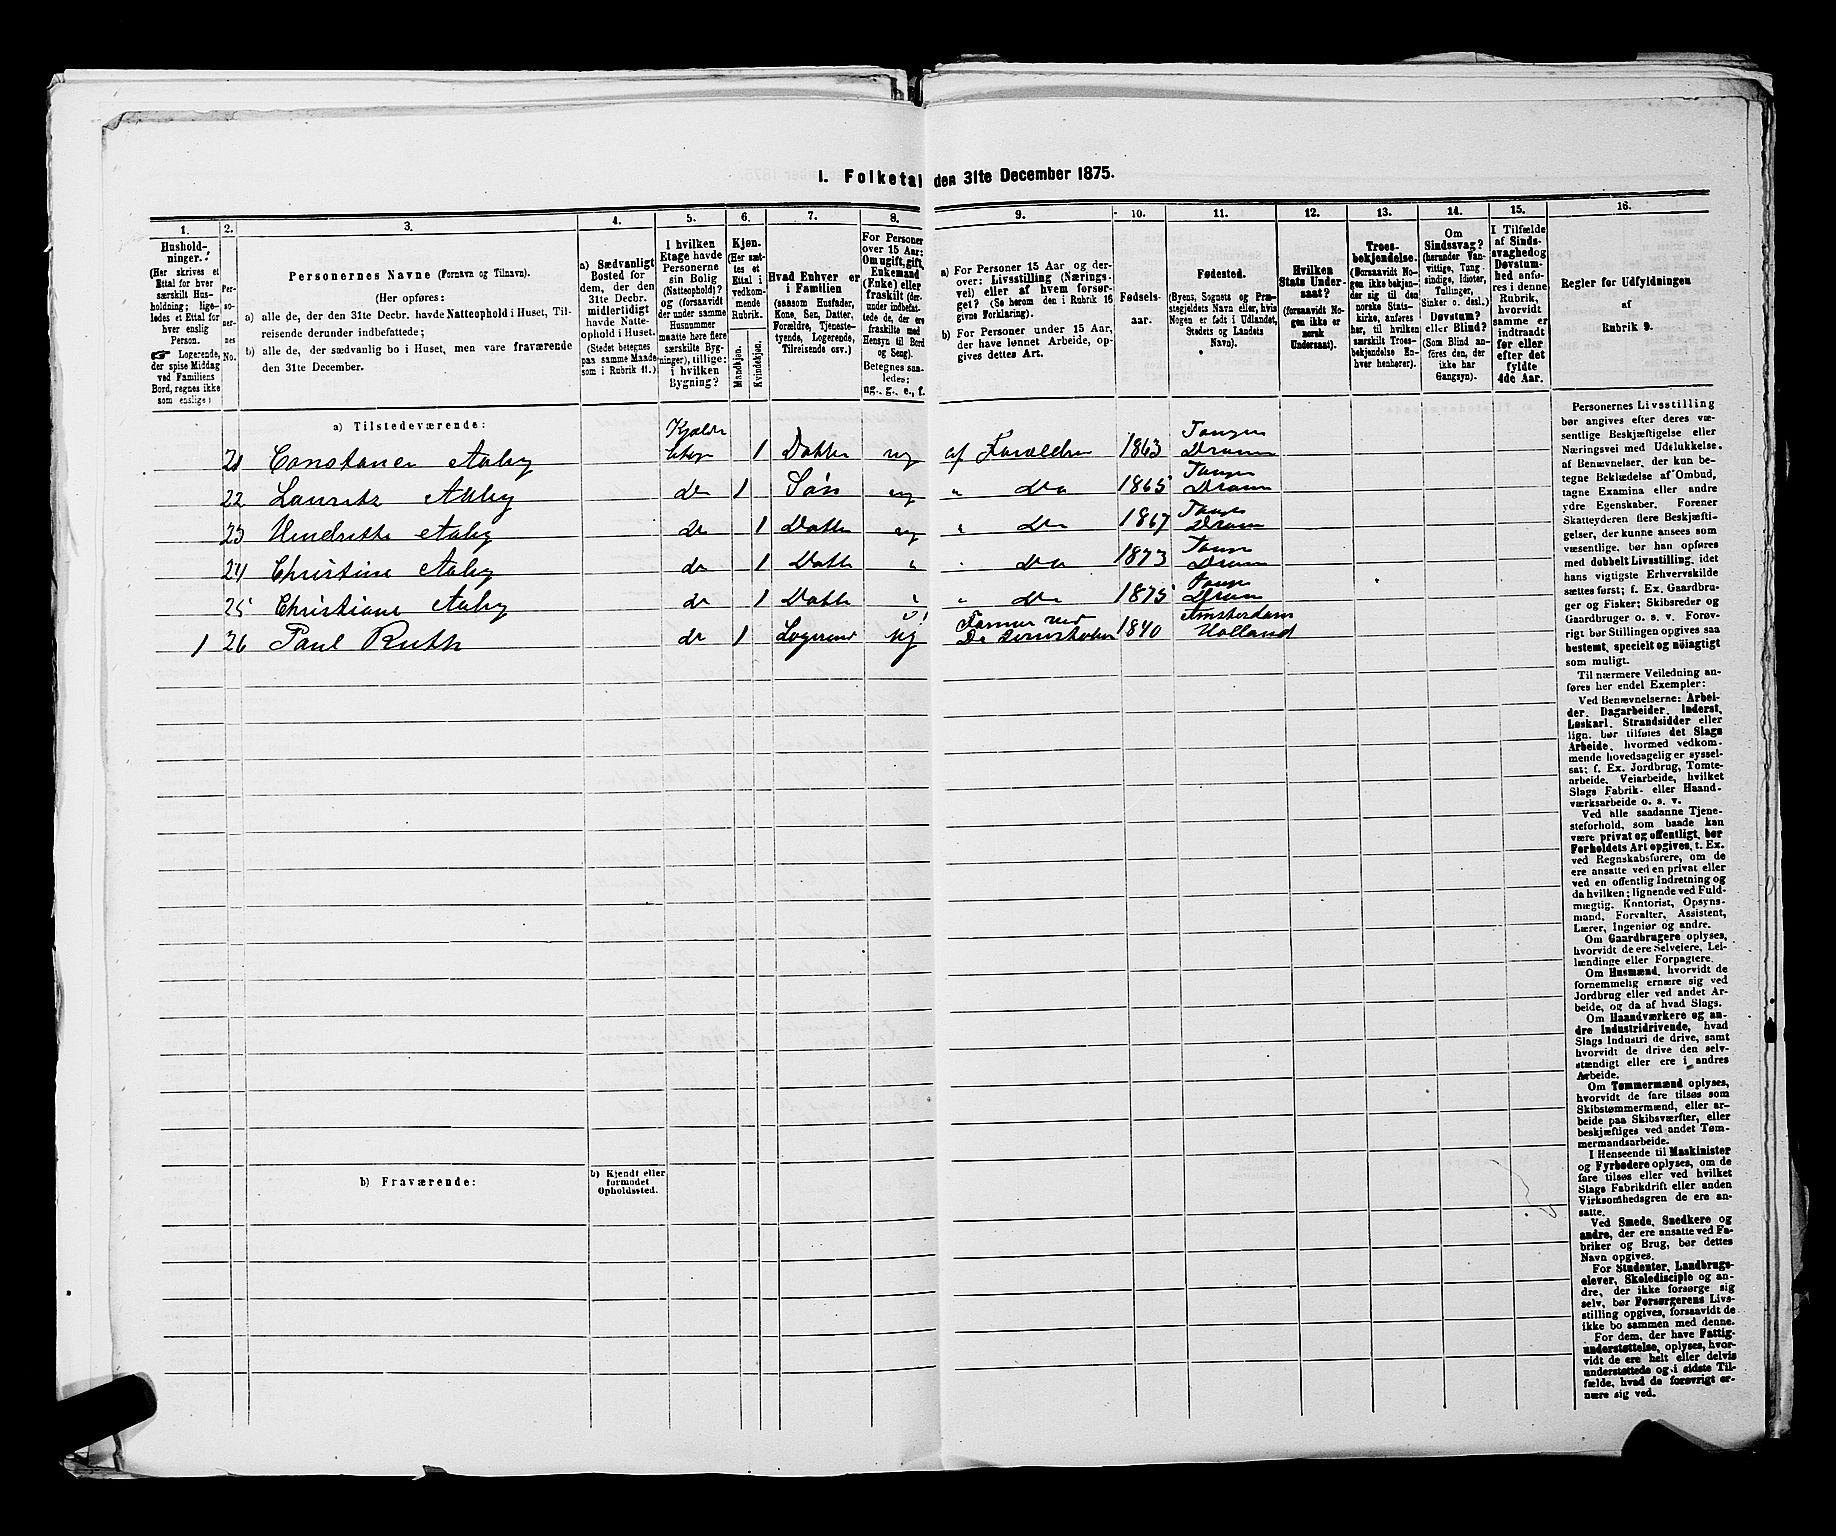 1. Folketal den 31te December 1875.
1.
Hushold-
ninger.
(Her skrives et
Ettal for hver
særskilt Hus-
holdning; lige-
ledes et Ettal for
hver enslig
Person.
☞ Logerende,
der spise Middag
ved Familiens
Bord, regnes ikke
som enslige)
2.
Per-
so-
ner-
nes
No.
3.
Personernes Navne (Fornavn og Tilnavn).
(Her opføres:
a) alle de, der den 31te Decbr. havde Natteophold i Huset, Til-
reisende derunder indbefattede;
b) alle de, der sædvanlig bo i Huset, men vare fraværende
den 31te December.
4.
a) Sædvanligt
Bosted for
dem, der den
31te Decbr.
midlertidigt
havde Natte-
ophold i Huset.
(Stedet betegnes
paa samme Maade
som i Rubrik 11.)
5.
I hvilken
Etage havde
Personerne
sin Bolig
(Natteophold)?
og (forsaavidt
der under samme
Husnummer
maatte høre flere
særskilte Byg-
ninger), tillige:
i hvilken
Bygning?
6.
Kjøn.
(Her sæt-
tes et
Ettal i
vedkom-
mende
Rubrik.
Mandkjøn.
Kvindekjøn.
7.
Hvad Enhver er
i Familien
(saasom Husfader,
Kone, Søn, Datter,
Forældre, Tjeneste-
tyende, Logerende,
Tilreisende osv.)
8.
For Personer
over 15 Aar:
Om ugift, gift,
Enkemand
(Enke) eller
fraskilt (der-
under indbefat-
tede de, der ere
fraskilte med
Hensyn til Bord
og Seng).
Betegnes saa-
ledes:
ug., g., e., f.
9.
a) For Personer 15 Aar og der-
over: Livsstilling (Nærings-
vei) eller af hvem forsør-
get? (Se herom den i Rubrik 16
givne Forklaring).
b) For Personer under 15 Aar,
der have lønnet Arbeide, op-
gives dettes Art.
10.
Fødsels-
aar.
11.
Fødested.
(Byens, Sognets og Præ-
stegjeldets Navn eller, hvis
Nogen er født i Udlandet,
Stedets og Landets
Navn).
12.
Hvilken
Stats Under-
saat?
(forsaavidt No-
gen ikke er
norsk
Undersaat).
13.
Troes-
bekjendelse.
(Forsaavidt No-
gen ikke bekjen-
der sig til den
norske Stats-
kirke, anføres
her, til hvilken
særskilt Troes-
bekjendelse En-
hver henhører).
14.
Om
Sindssvag?
(herunder Van-
vittige, Tung-
sindige, Idioter,
Tullinger,
Sinker o. desl.)
Døvstum?
eller Blind?
(Som Blind an-
føres den, der
ikke har
Gangsyn).
15.
I Tilfælde
af Sinds-
svaghed og
Døvstum-
hed anfø-
res i denne
Rubrik,
hvorvidt
samme er
indtraadt
før eller
efter det
fyldte
4de Aar.
16.
Regler for Udfyldningen
af
Rubrik 9.
a) Tilstedeværende:
21 Constance Aaby Kjælder Etage 1 Datter ug af Forældre 1863 Tangen Dram
22 Lauritz Aaby do 1 Søn ug " Do 1865 Tangen Dram
23 Hendrikke Aaby do 1 Datter ug " Do 1867 Tangen Dram
24 Christine Aaby do 1 Datter " " Do 1873 Tangen Dram
25 Christiane Aaby do 1 Datter " " Do 1875 Tangen Dram
1 26 Paul Ruth do 1 Logerend ug 1840 Amsterdam Holland
b) Fraværende:
b) Kjendt eller
formodet
Opholdssted.
Personernes Livsstilling
bør angives efter deres væ-
sentlige Beskjæftigelse eller
Næringsvei med Udelukkelse
af Benævnelser, der kun be-
tegne Beklædelse af Ombud,
tagne Examina eller andre
ydre Egenskaber. Forener
Skatteyderen flere Beskjæfti-
gelser, der kunne ansees som
væsentlige, bør han opføres
med dobbelt Livsstilling, idet
hans vigtigste Erhvervskilde
sættes først; f. Ex. Gaardbru-
ger og Fisker; Skibsreder og
Gaardbruger o. s. v. Forøv-
rigt bør Stillingen opgives saa
bestemt, specielt og nøiagtigt
som muligt.
Til nærmere Veiledning an-
føres her endel Exempler:
Ved Benævnelserne: Arbei-
der, Dagarbeider, Inderst,
Løskarl, Strandsidder eller
lign. bør tilføies det Slags
Arbeide, hvormed vedkom-
mende hovedsagelig er syssel-
sat; f. Ex. Jordbrug, Tomte-
arbeide, Veiarbeide, hvilket
Slags Fabrik- eller Haand-
værksarbeide o. s. v.
Ved alle saadanne Tjene-
steforhold, som baade kan
være privat og offentligt, bør
Forholdets Art opgives, t. Ex.
ved Regnskabsførere, om de
ere ansatte ved en privat eller
ved en offentlig Indretning og
da hvilken; lignende ved Fuld-
mægtig, Kontorist, Opsyns-
mand, Forvalter, Assistent,
Lærer, Ingeniør og andre.
Om Gaardbrugere oplyses,
hvorvidt de ere Selveiere, Lei-
lændinge eller Forpagtere.
Om Husmænd, hvorvidt de
fornemmelig ernære sig ved
Jordbrug eller ved andet Ar-
beide, og da af hvad Slags.
Om Haandværkere og an-
dre Industridrivende, hvad
Slags Industri de drive, samt
hvorvidt de drive den selv-
stændigt eller ere i andres
Arbeide.
Om Tømmermænd oplyses,
hvorvidt de fare tilsøs som
Skibstømmermænd, eller ar-
beide paa Skibsværfter, eller
beskjæftiges ved andet Tøm-
mermandsarbeide.
I Henseende til Maskinister
og Fyrbødere oplyses, om de
fare tilsøs eller ved hvilket
Slags Fabrikdrift eller anden
Virksomhedsgren de ere an-
satte.
Ved Smede, Snedkere og
andre, der ere ansatte ved Fa-
briker og Brug, bør dettes
Navn opgives.
For Studenter, Landbrugs-
elever, Skoledisciple og an-
dre, der ikke forsørge sig
selv, bør Forsørgerens Livs-
stilling opgives, forsaavidt de
ikke bo sammen med denne.
For dem, der have Fattig-
understøttelse, oplyses, hvor-
vidt de ere helt eller delvis
understøttede og i sidste Til-
fælde, hvad de forøvrigt er-
nære sig ved.